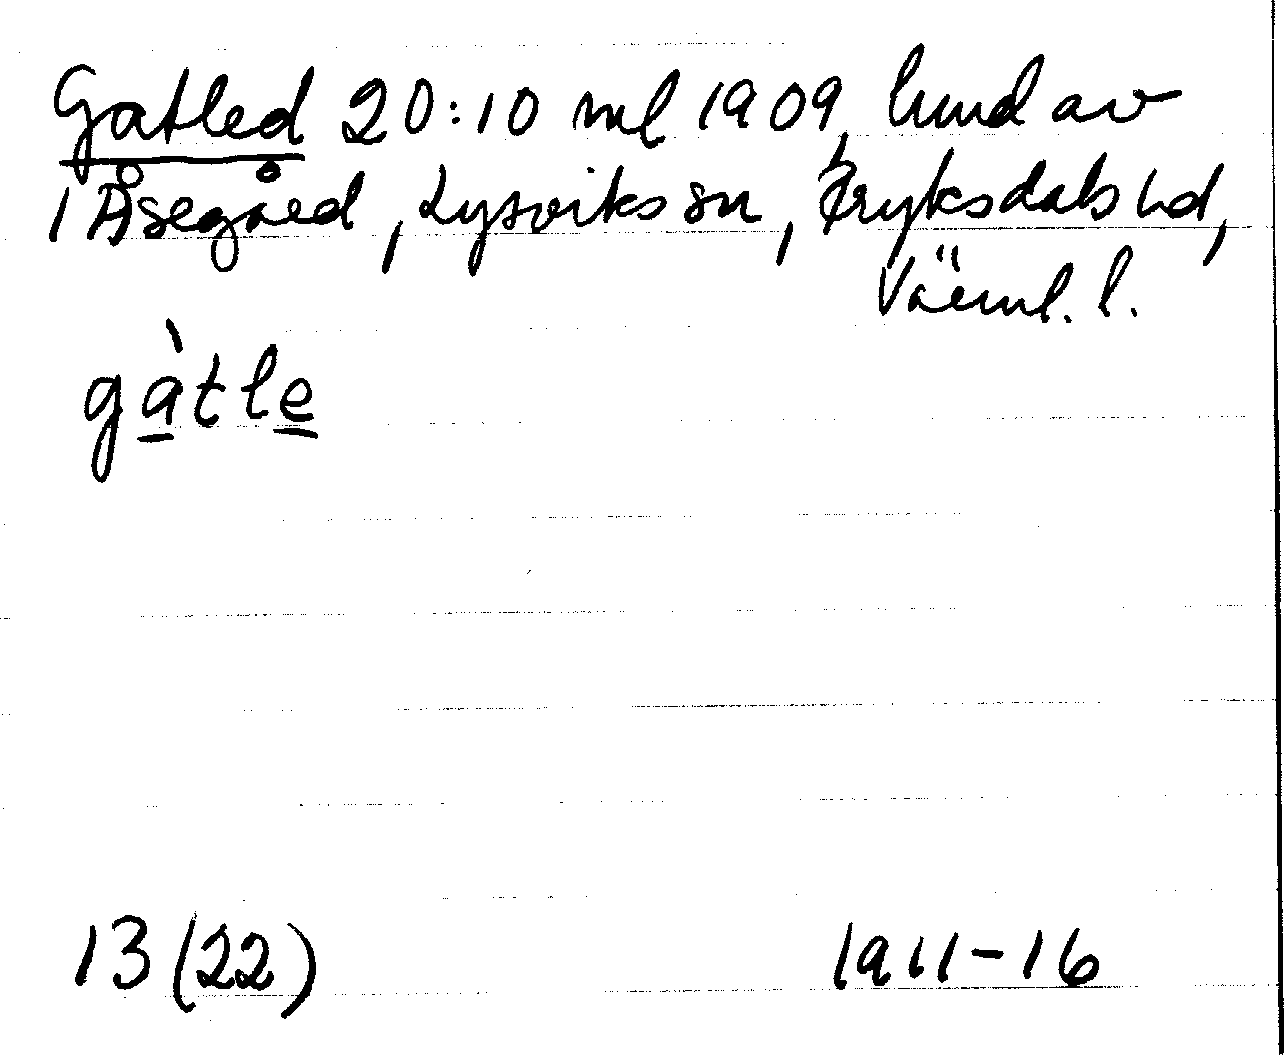 Gatled 20:10 ml 1909, lund av
1 Åsegård, Lysviks sn, Fryksdals hd,
Värml. l.
gàtle
13 (22) 1911-16